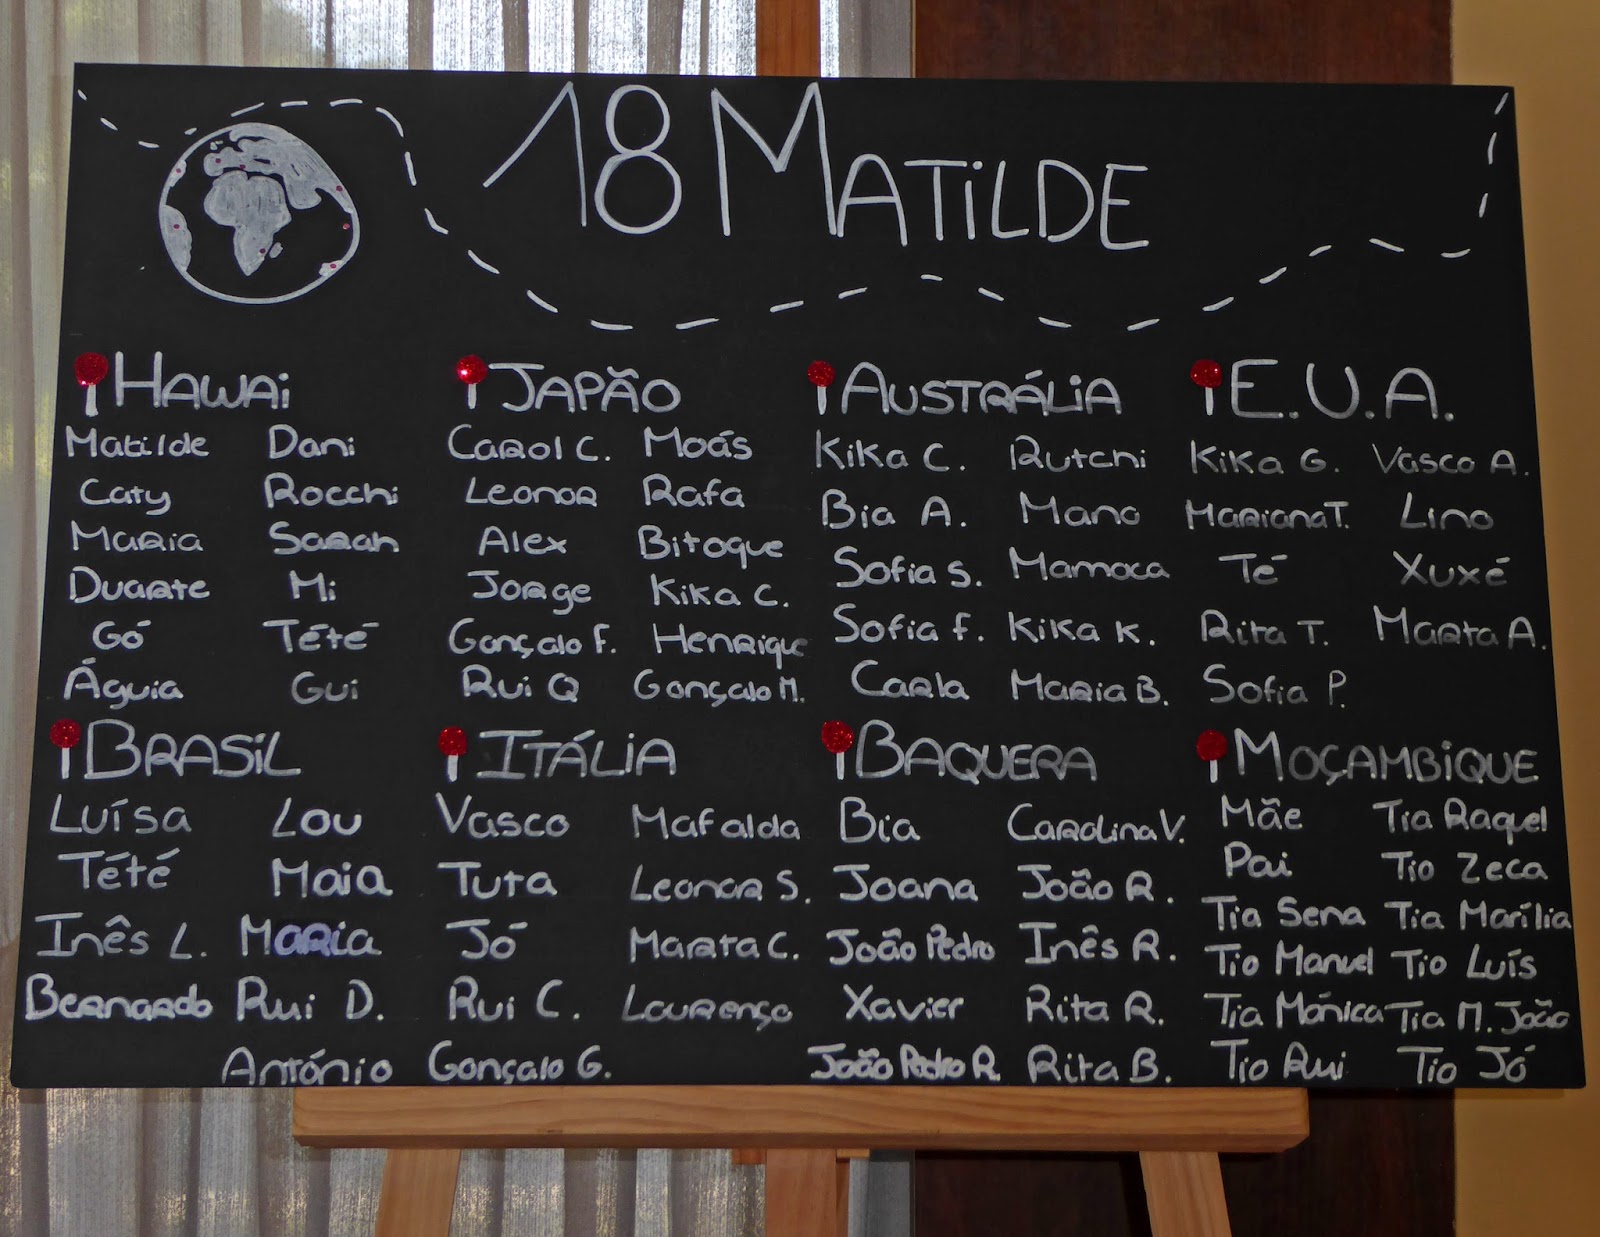 18 MATiLDE
HAWAi
Matilde Dani
Caty Rocchi
Maria Sarah
Duarte Mi
Gó Tété
Águia Gui
JAPÃO
Carol C. Moás
Leonor Rafa
Alex Bitoque
Jorge Kika C.
Gonçalo F. Henrique
Rui Q Gonçalo M.
AUSTRÁLiA
Kika C. Rutchi
Bia A. Mano
Sofia S. Mamoca
Sofia F. Kika K.
Carla Maria B.
E.U.A.
Kika G. Vasco A.
Mariana T. Lino
Té Xuxé
Rita T. Marta A.
Sofia P.
BRASiL
Luísa Lou
Tété Maia
Inês L. Maria
Bernardo Rui D.
António
ITÁLiA
Vasco Mafalda
Tuta Leonor S.
Jó Marta C.
Rui C. Lourenço
Gonçalo G.
BAQUERA
Bia Carolina V.
Joana João R.
João Pedro Inês R.
Xavier Rita R.
João Pedro R. Rita B.
MOÇAMBiQUE
Mãe Tia Raquel
Pai Tio Zeca
Tia Sena Tia Marília
Tio Manuel Tio Luís
Tia Mónica Tia M. João
Tio Rui Tio Jó